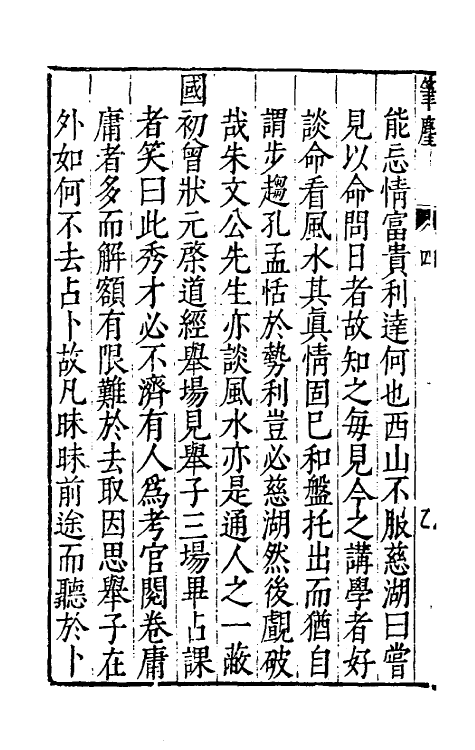 筆麈
四
能忘情富貴利達何也西山不服慈湖曰嘗
見以命問日者故知之每見今之講學者好
談命看風水其眞情固已和盤托出而猶自
謂步趨孔孟恬於勢利豈必慈湖然後覰破
哉朱文公先生亦談風水亦是通人之一蔽
國初曾狀元棨道經舉場見舉子三場畢占課
者笑曰此秀才必不濟有人爲考官閱卷庸
庸者多而解額有限難於去取因思舉子在
外如何不去占卜故凡昧昧前途而聽於卜